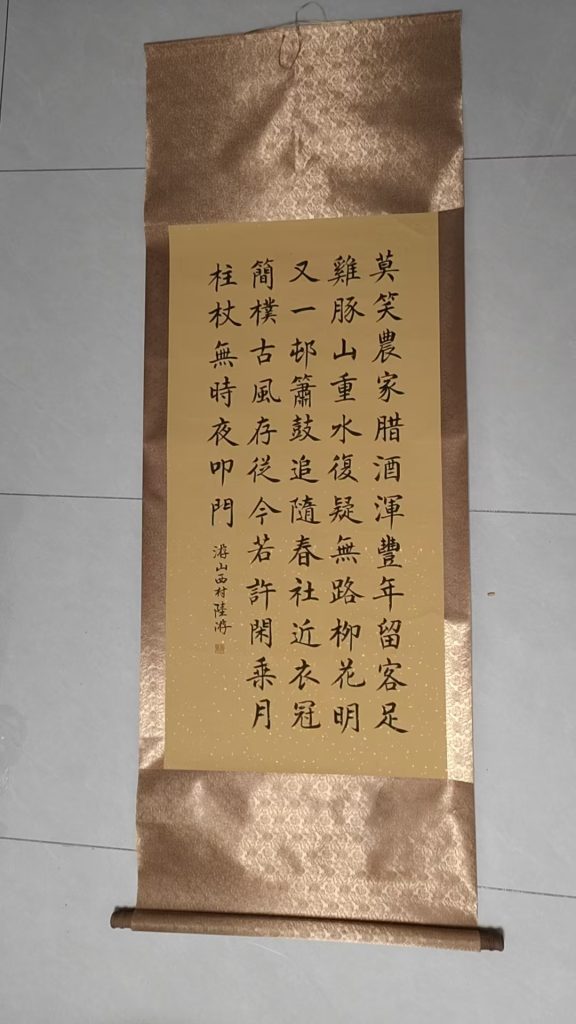 莫笑農家腊酒渾豐年留客足
雞豚山重水復疑無路柳花明
又一邨簫鼓追隨春社近衣冠
簡樸古風存從今若許閑乗月
柱杖無時夜叩門
游山西村陸游